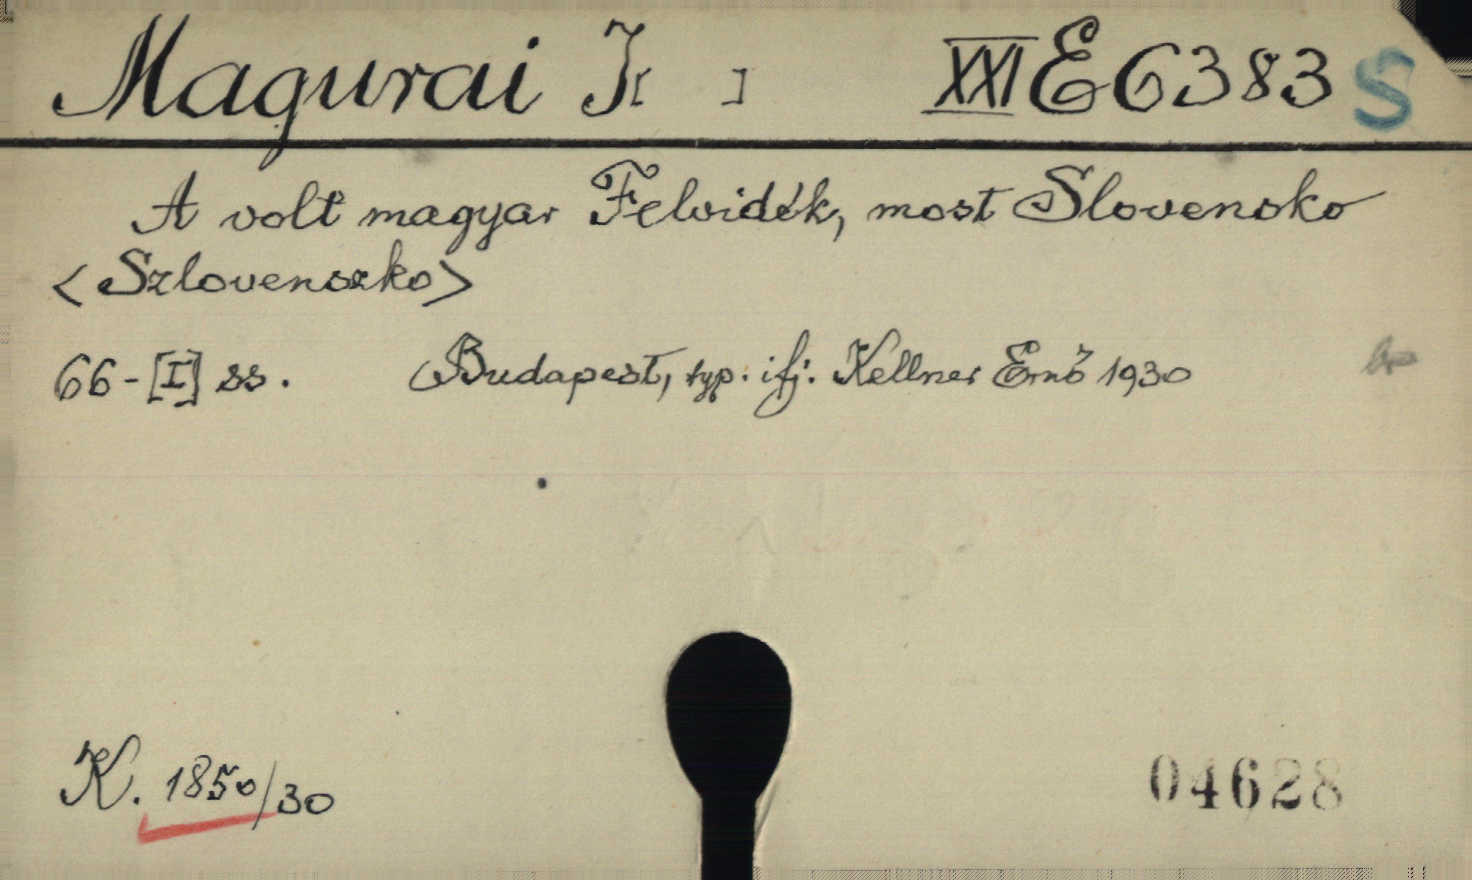 Magurai J[ ] XXI E 6383 S
A volt magyar Felvidék, most Slovensko
<Szlovenszko>
66-[I] ss. Budapest, typ. ifj. Kellner Ernő 1930
K. 1850/30
04628